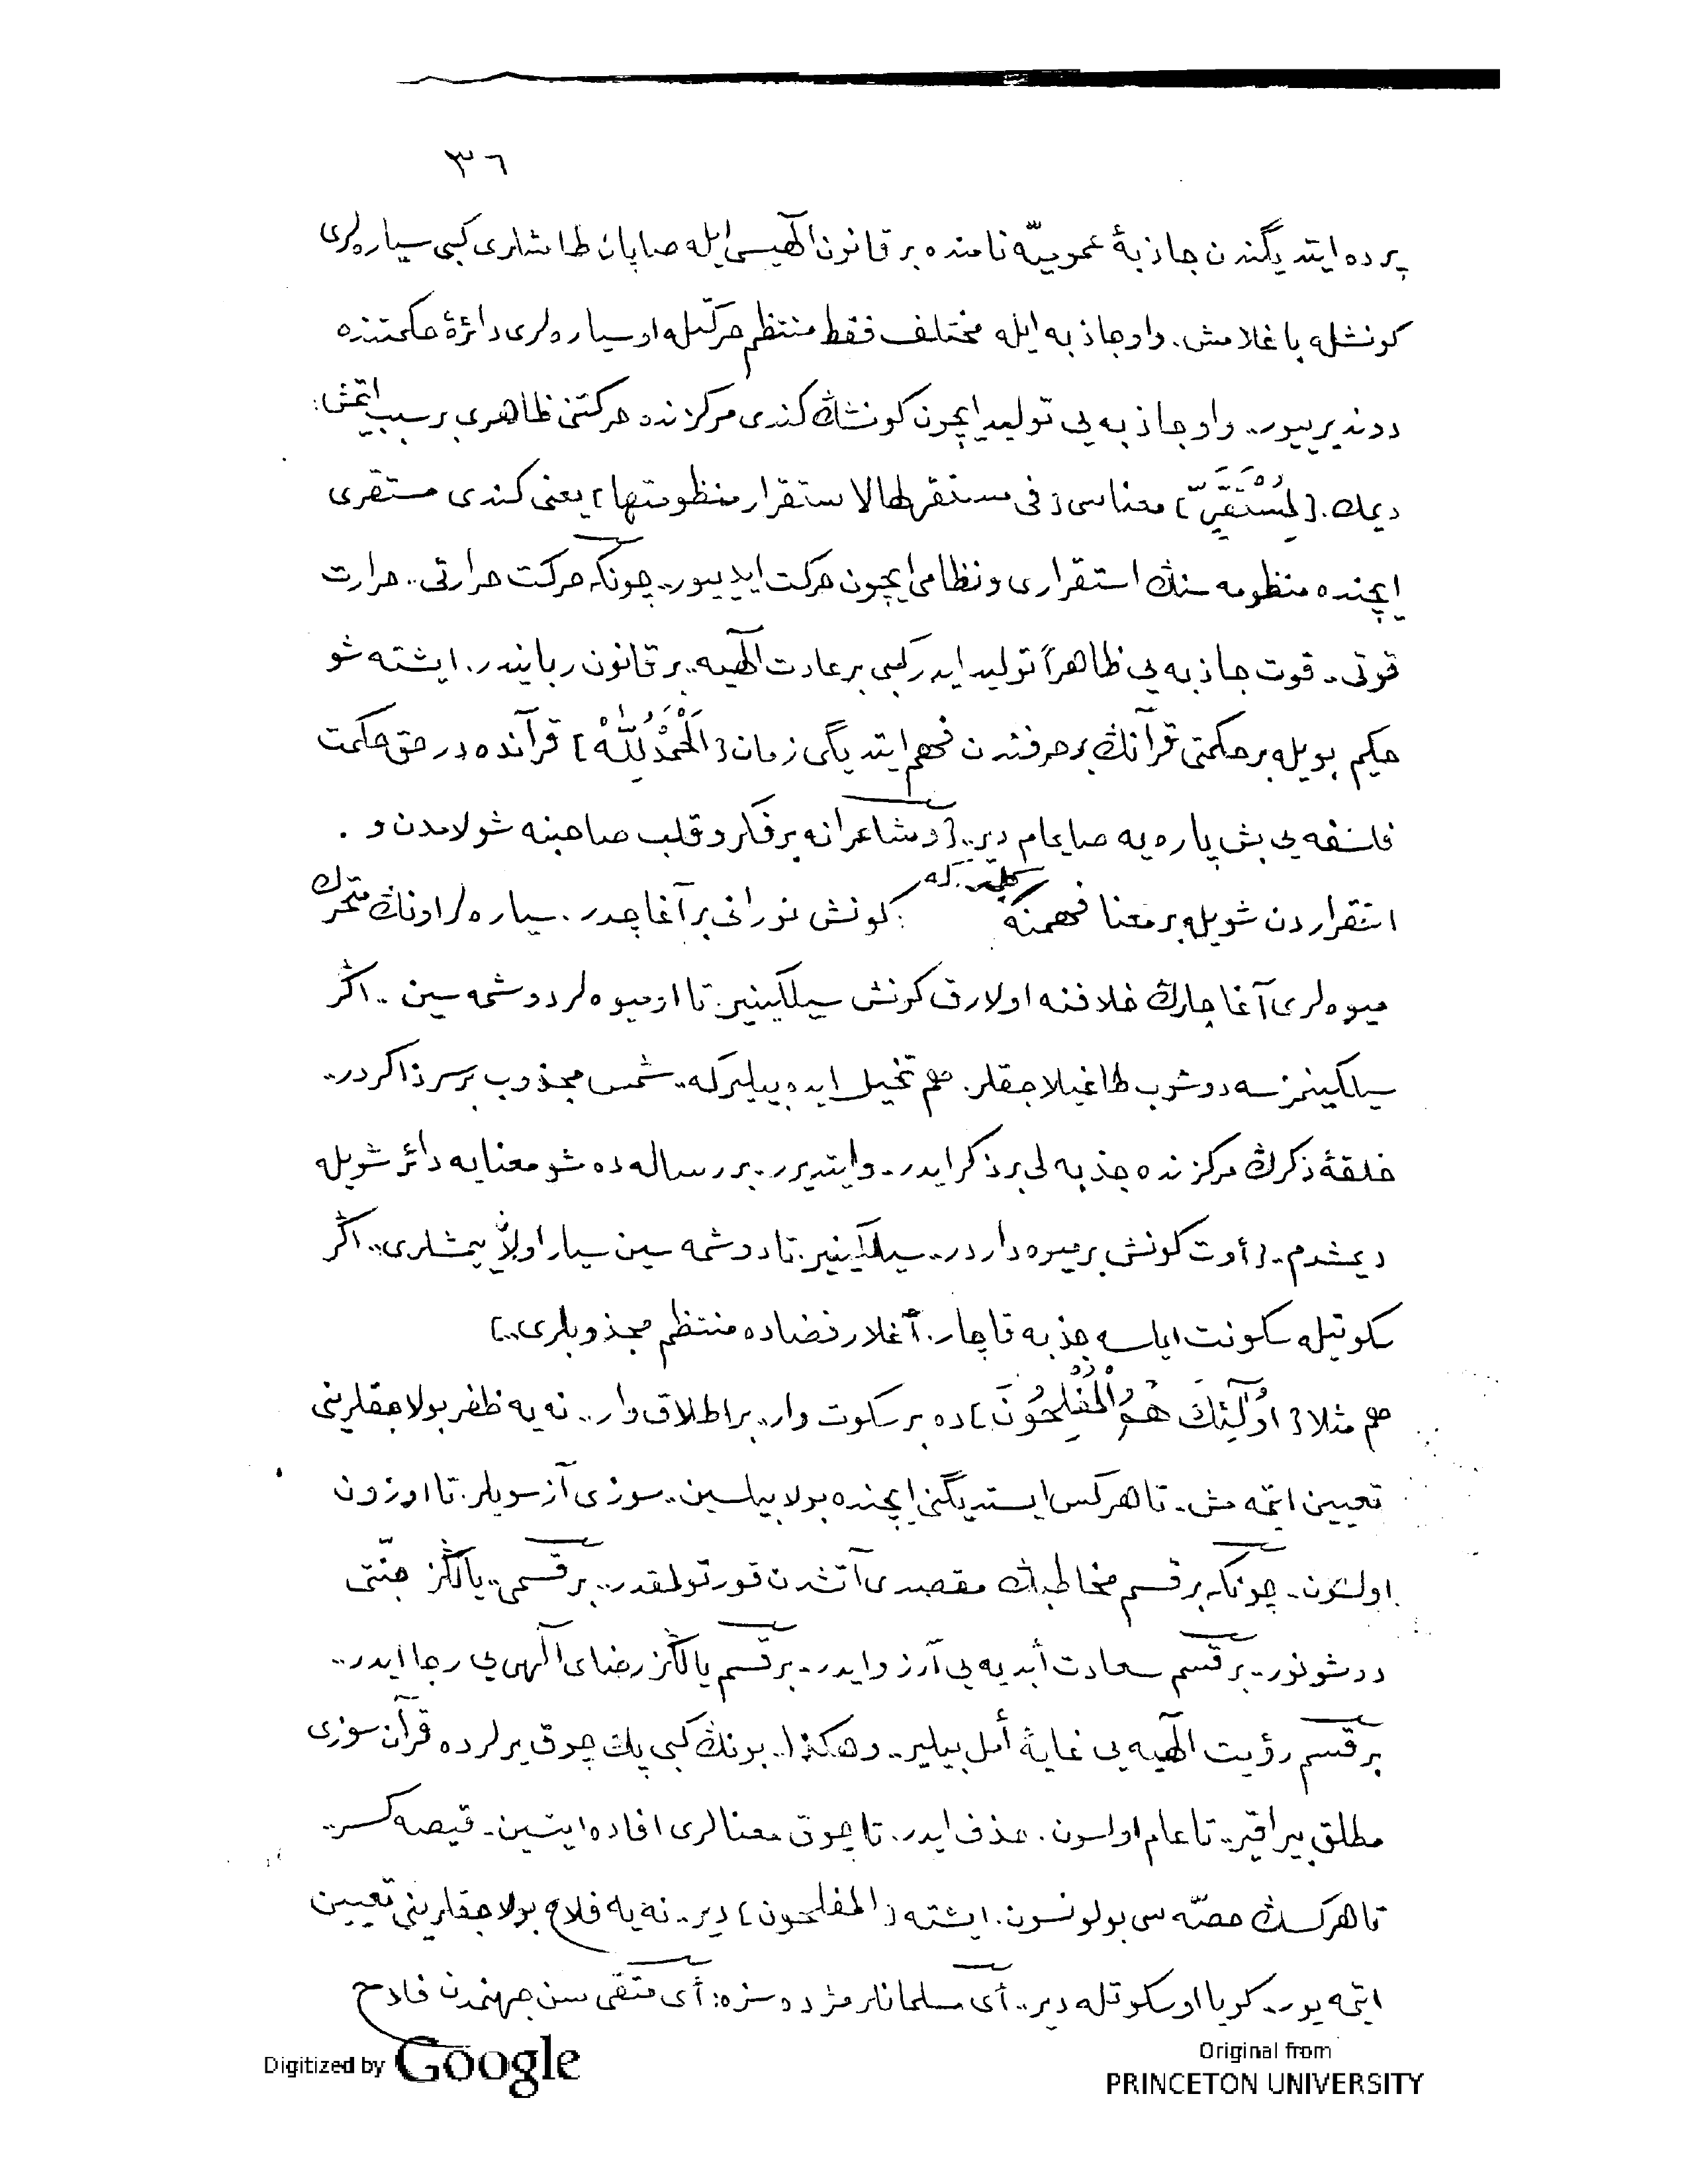 ٣٦
پرده ایتدیگندن جاذبۀ عمومیّه نامنده بر قانون الٓهیسی ایله صاپان طاشلری کبی سیاره‌لری
کونشله باغلامش. واو جاذبه ایله مختلف فقط منتظم حرکتله او سیاره‌لری دائرۀ حکمتنده
دوندیرییور.. واو جاذبه‌یی تولید ایچون کونشڭ کندی مرکزنده حرکتنی ظاهری بر سبب ایتمش:
دیمك. [لِمُسْتَقَرٍّ] معناسی [فی مستقر لها لاستقرار منظومتها] یعنی کندی مستقری
ایچنده منظومه سنڭ استقراری و نظامی ایچون حرکت ایدییور.. چونکه حرکت حرارتی.. حرارت
قوتی.. قوت جاذبه‌یی ظاهراً تولید ایدر کبی بر عادت الٓهیه.. بر قانون ربانیدر. ایشته شو
حکیم بویله بر حکمتی قرآنڭ بر حرفندن فهم ایتدیگی زمان [اَلْحَمْدُ لِلّٰهْ] قرآنده در حق حکمت
فلسفه‌یی بش پاره‌یه صایمام دیر.. [و شاعرانه بر فکر و قلب صاحبنه شو لامدن و
استقراردن شویله بر معنا فهمنه کلیر که: کونش نورانی بر آغاچدر. سیاره‌لر اونڭ متحرك
میوه‌لری آغاجلرڭ خلافنه اولارق کونش سیلکینیر. تا او میوه‌لر دوشمه‌سین.. اگر
سیلکینمزسه دوشوب طاغیلاجقلر. هم تخیل ایده بیلیر که.. شمس مجذوب بر سر ذاکردر..
حلقۀ ذکرڭ مرکزنده جذبه‌لی بر ذکر ایدر.. وایتدیرر.. بر رساله‌ده شو معنایه دائر شویله
دیمشدم.. [أوت کونش بر میوه‌داردر.. سیلکینیر. تا دوشمه‌سین سیار اولاڭ یمشلری.. اگر
سکوتیله سکونت ایلسه جذبه قاچار. آغلار فضاده منتظم مجذوبلری..]
هم مثلا [اُولٰٓئِكَ هُمُ الْمُفْلِحُونَ] ده بر سکوت وار.. بر اطلاق وار.. نه‌یه ظفر بولاجقلرینی
تعیین ایتمه‌مش.. تا هرکس ایستدیگنی ایچنده بولا بیلسین.. سوزی آز سویلر. تا اوزون
اولسون.. چونکه بر قسم مخاطبڭ مقصدی آتشدن قورتولمقدر.. بر قسمی.. یالڭز جنّتی
دوشونور.. بر قسم سعادت أبدیه‌یی آرزو ایدر.. بر قسم یالڭز رضای الٓهی‌یی رجا ایدر..
بر قسم رؤیت الٓهیه‌یی غایۀ أمل بیلیر.. و هکذا.. بونڭ کبی پك چوق یرلرده قرآن سوزی
مطلق بیراقیر.. تا عام اولسون. حذف ایدر. تا چوق معنالری افاده ایتسین.. قیصه کسر..
تا هرکسڭ حصّه‌سی بولونسون. ایشته [المفلحون] دیر.. نه‌یه فلاح بولاجقلرینی تعیین
ایتمه‌یور.. کویا او سکوتله دیر.. أی مسلمانلر مژده سزه: أی متّقی سن جهنمدن فلاح
Digitized by Google
Original from
PRINCETON UNIVERSITY